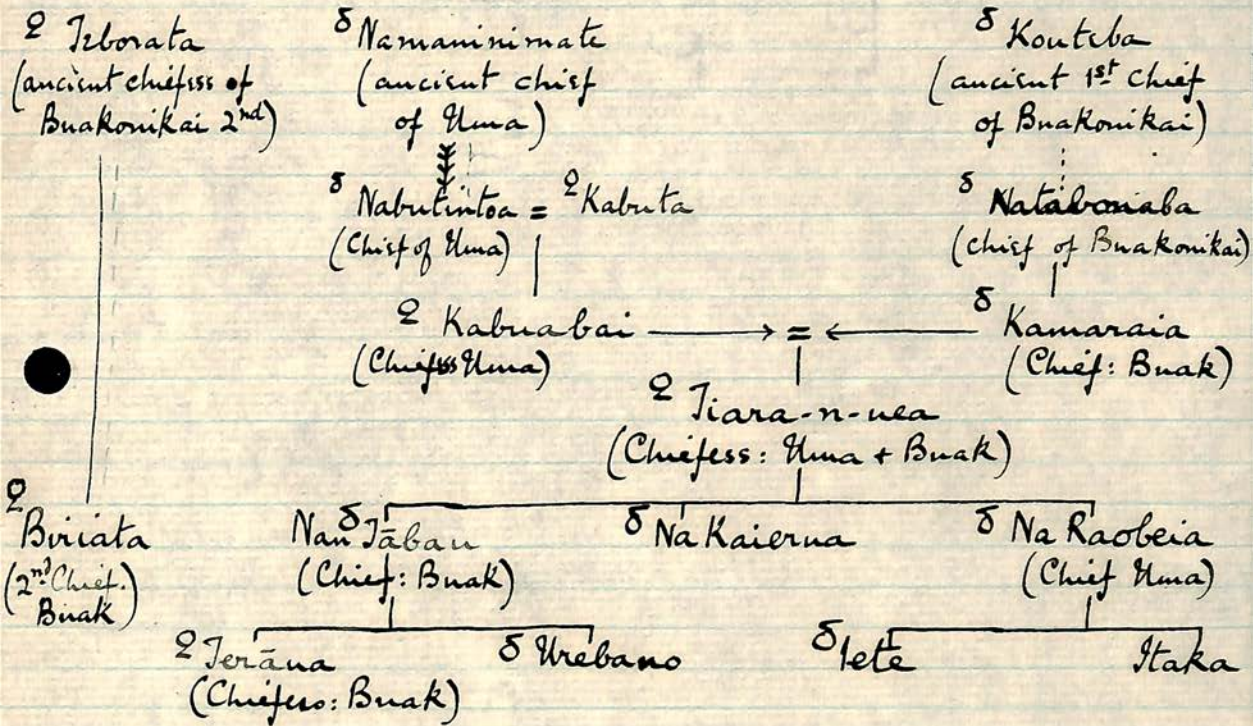 ♀ Teborata
(ancient chiefess of
Buakonikai 2nd)
♂ Namaninimate
(ancient chief
of Uma)
♂ Kouteba
(ancient 1st Chief
of Buakonikai)
♂ Nabutintoa = ♀ Kabuta
(Chief of Uma)
♂ Nataboniaba
(chief of Buakonikai)
♀ Kabuabai = ♂ Kamaraia
(Chiefess Uma)
(Chief: Buak)
♀ Tiara-n-uea
(Chiefess: Uma + Buak)
♀ Biriata
(2nd Chief.
Buak)
♂ Nan Tāban
(Chief: Buak)
♂ Na Kaierua
♂ Na Raobeia
(Chief Uma)
♀ Terāua
(Chiefess: Buak)
♂ Urebano
♂ Iete
Itaka